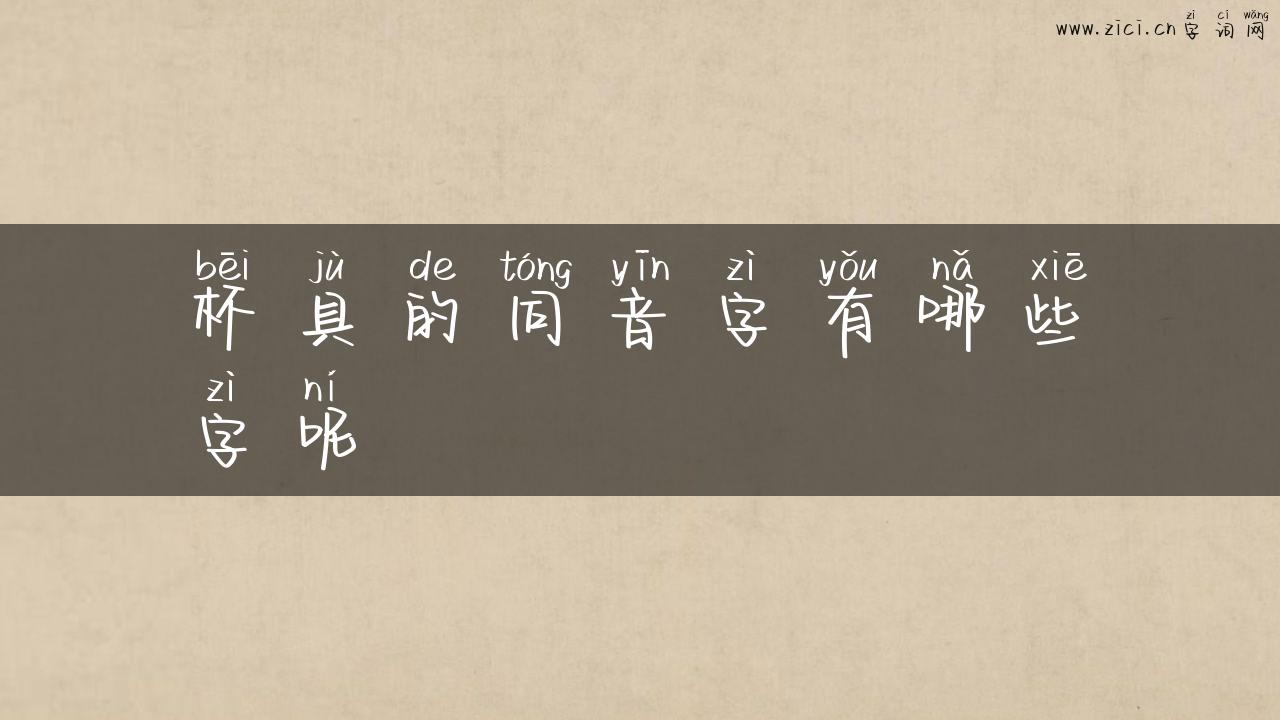 zì cí wǎng
www.zici.cn字词网
bēi jù de tóng yīn zì yǒu nǎ xiē
杯具的同音字有哪些
zì ní
字呢